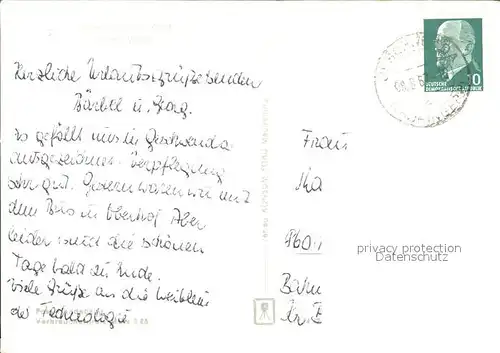 Herzliche Urlaubsgrüße senden
Bärbel u. Georg.
Es gefällt uns in Geschwenda
ausgezeichnet. Verpflegung
sehr gut. Gestern waren wir mit
dem Bus in Oberhof. Aber
leider sind die schönen
Tage bald zu Ende.
Viele Grüße an die Weiblein
der Technologie
DEUTSCHE
DEMOKRATISCHE REPUBLIK
Frau
Ma
privacy protection
Datenschutz
Bahn